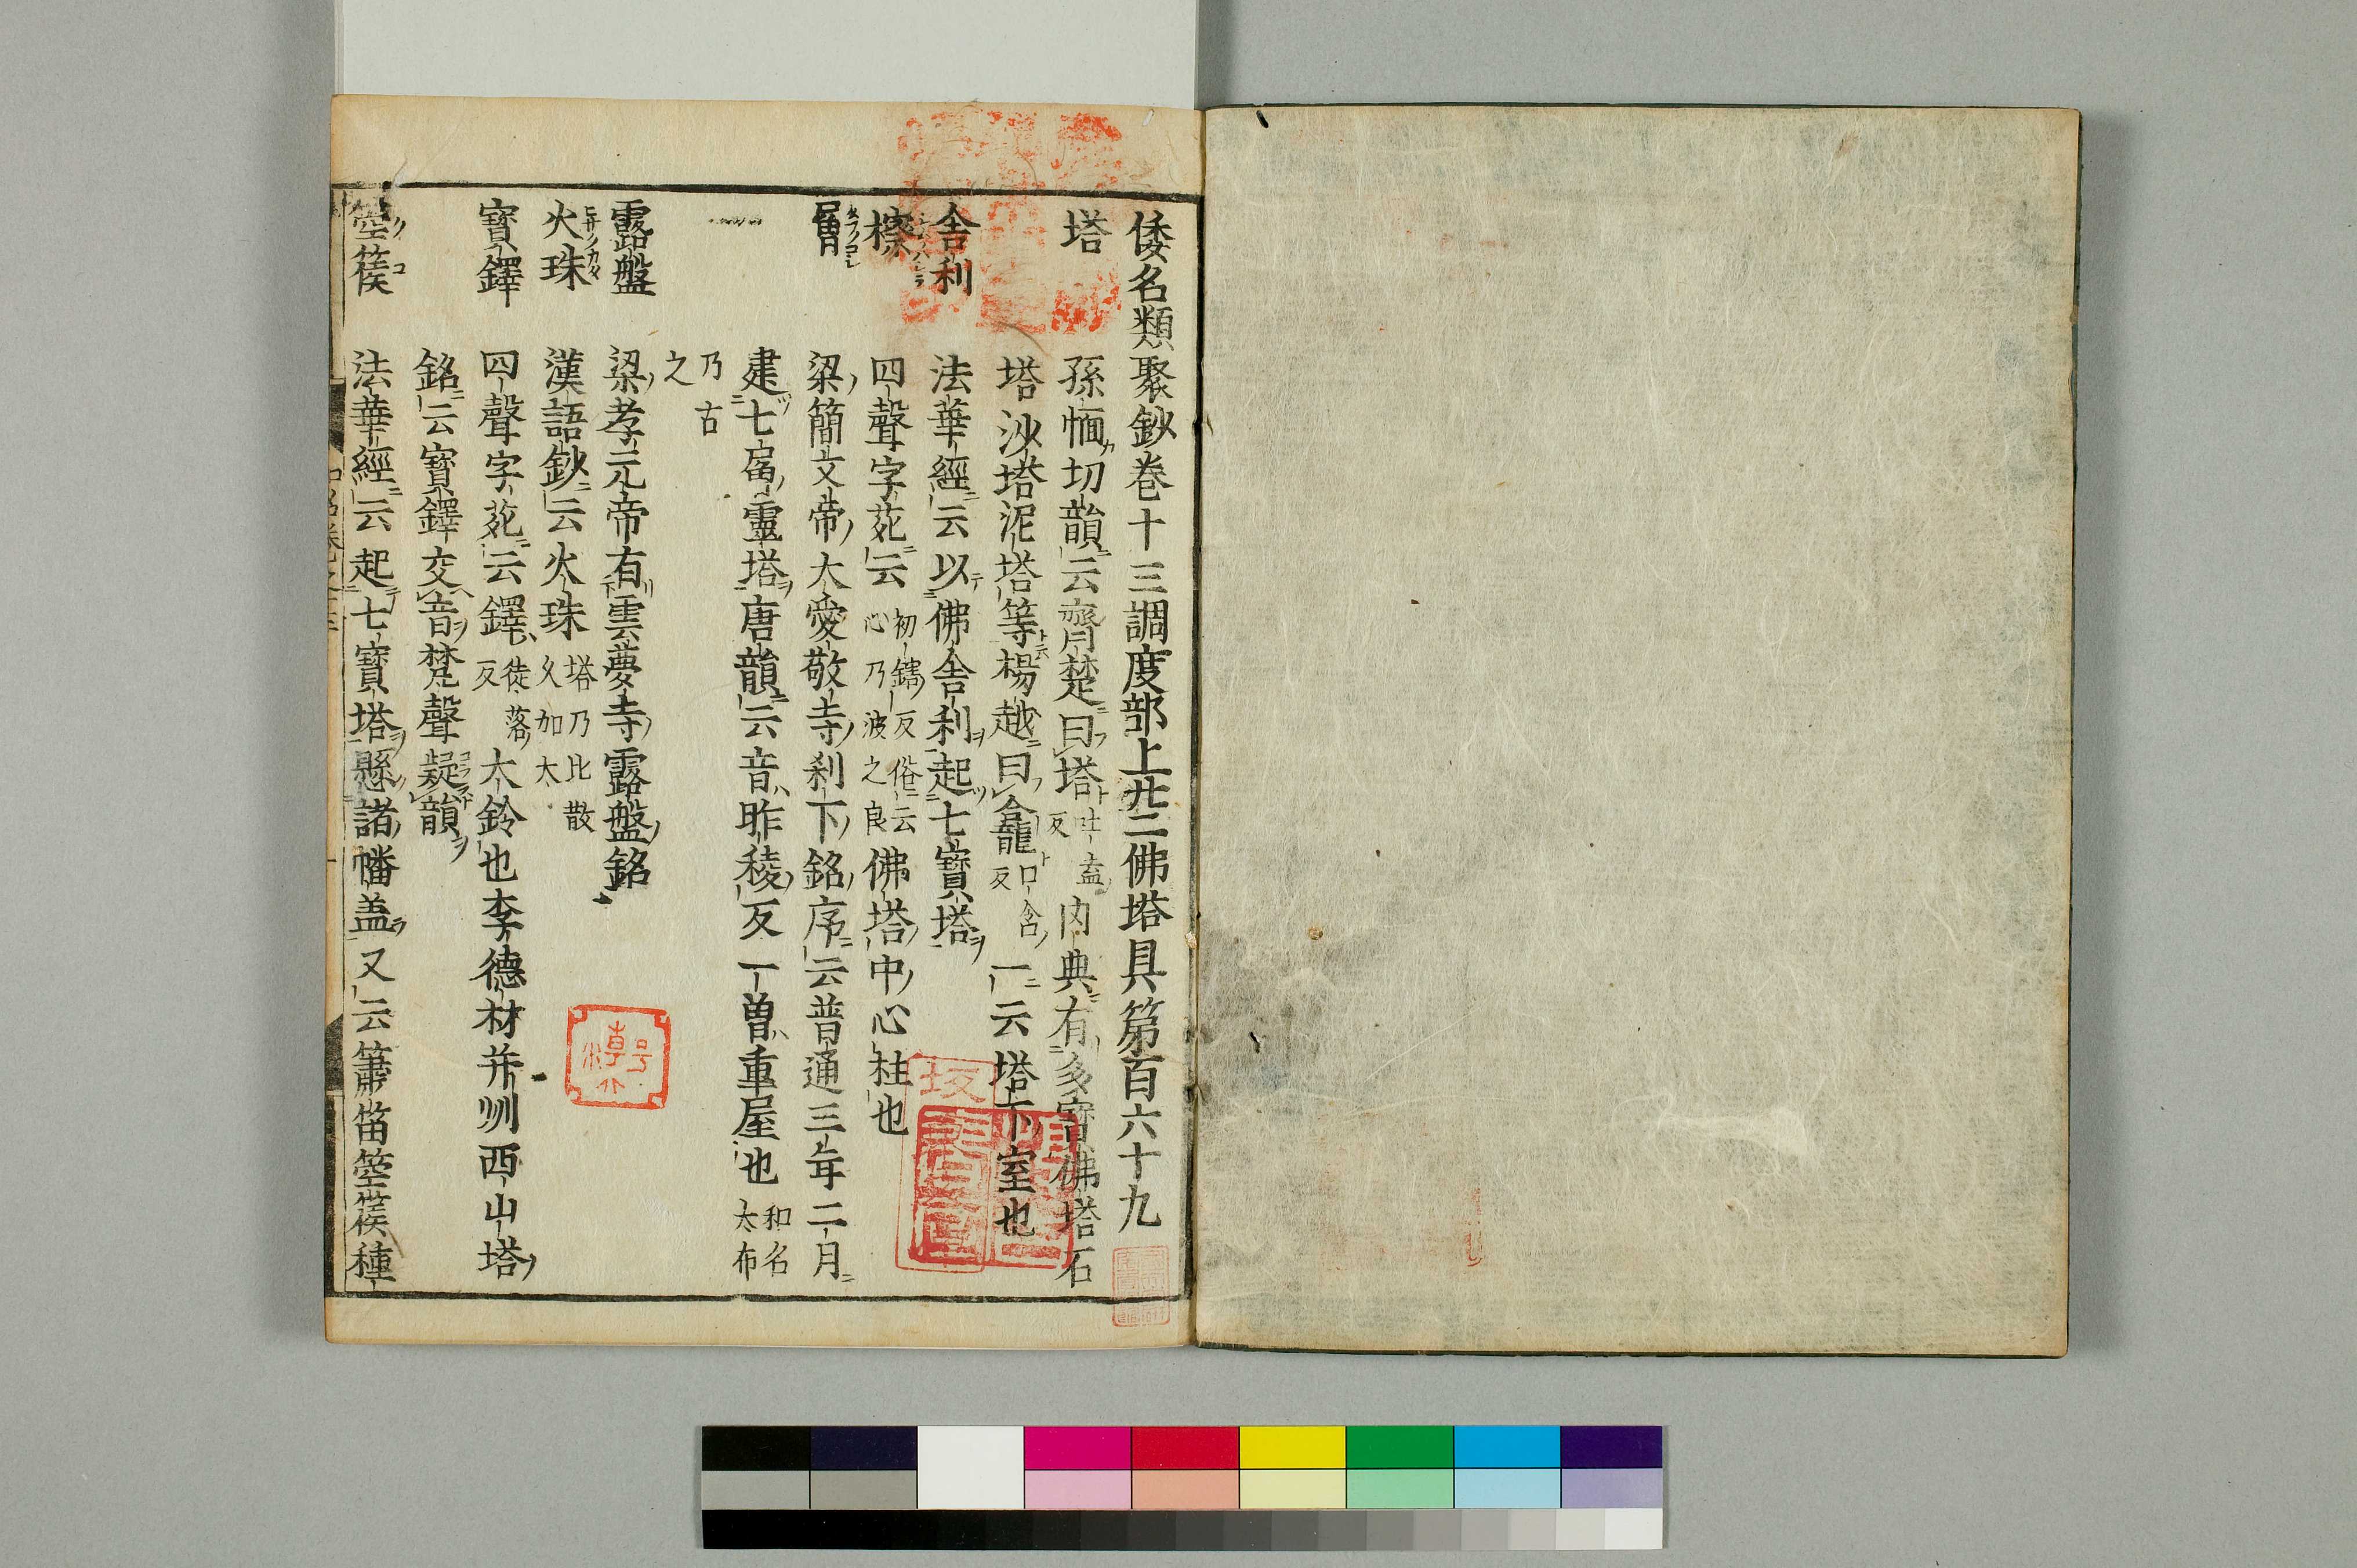 倭名類聚鈔巻十三調度部上卄二佛塔具第百六十九
塔 孫愐切韻云齊楚曰塔吐盍反内典有多寶佛塔石
塔沙塔泥塔等楊越曰龕口含反一云塔下室也
舎利 法華經云以佛舎利起七寶塔
檫 四聲字苑云初鎋反俗云心乃波之良佛塔中心柱也
層 梁簡文帝大愛敬寺刹下銘序云普通三年二月
建七層靈塔唐韻云音昨稜反一曽重屋也和名太布
乃古之
露盤 梁孝元帝有雲夢寺露盤銘
火珠 漢語鈔云火珠塔乃比散久加太
寳鐸 四聲字苑云鐸徒落反大鈴也李德材并州西山塔
銘云寳鐸交音梵聲凝韻
箜篌 法華經云起七寳塔懸諸幡盖又云簫笛箜篌種